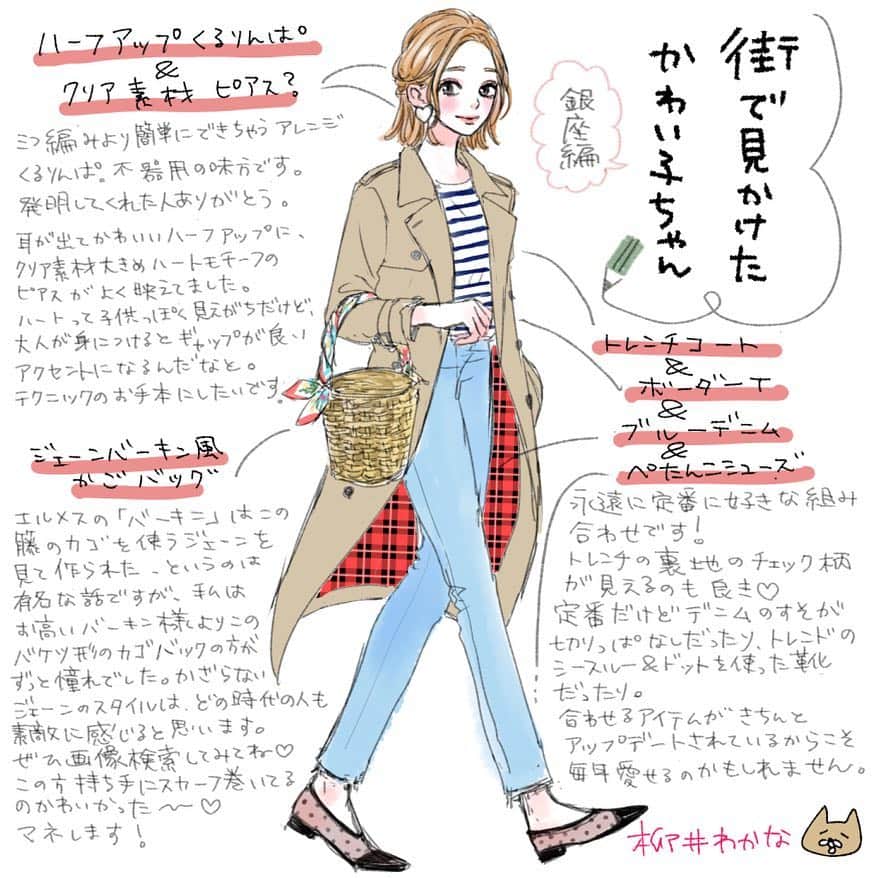 街で見かけた
かわい子ちゃん
銀座編
ハーフアップくるりんぱ
&
クリア素材ピアス?
三つ編みより簡単にできちゃうアレンジ
くるりんぱ。不器用の味方です。
発明してくれた人ありがとう。
耳が出てかわいいハーフアップに、
クリア素材大きめハートモチーフの
ピアスがよく映えてました。
ハートって子供っぽく見えがちだけど、
大人が身につけるとギャップが良い
アクセントになるんだなと。
テクニックのお手本にしたいです。
ジェーンバーキン風
かごバッグ
エルメスの「バーキン」はこの
籐のカゴを使うジェーンを
見て作られた…というのは
有名な話ですが、私は
お高いバーキン様よりこの
バケツ形のカゴバックの方が
ずっと憧れでした。かざらない
ジェーンのスタイルは、どの時代の人も
素敵に感じると思います。
ぜひ画像検索してみてね♡
この方持ち手にスカーフ巻いてる
のかわいかった〜♡
マネします!
トレンチコート
&
ボーダーT
&
ブルーデニム
&
ぺたんこシューズ
永遠に定番に好きな組み
合わせです!
トレンチの裏地のチェック柄
が見えるのも良き♡
定番だけどデニムのすそが
切りっぱなしだったり、トレンドの
シースルー&ドットを使った革靴
だったり。
合わせるアイテムがきちんと
アップデートされているからこそ
毎年愛せるのかもしれません。
柳井わかな